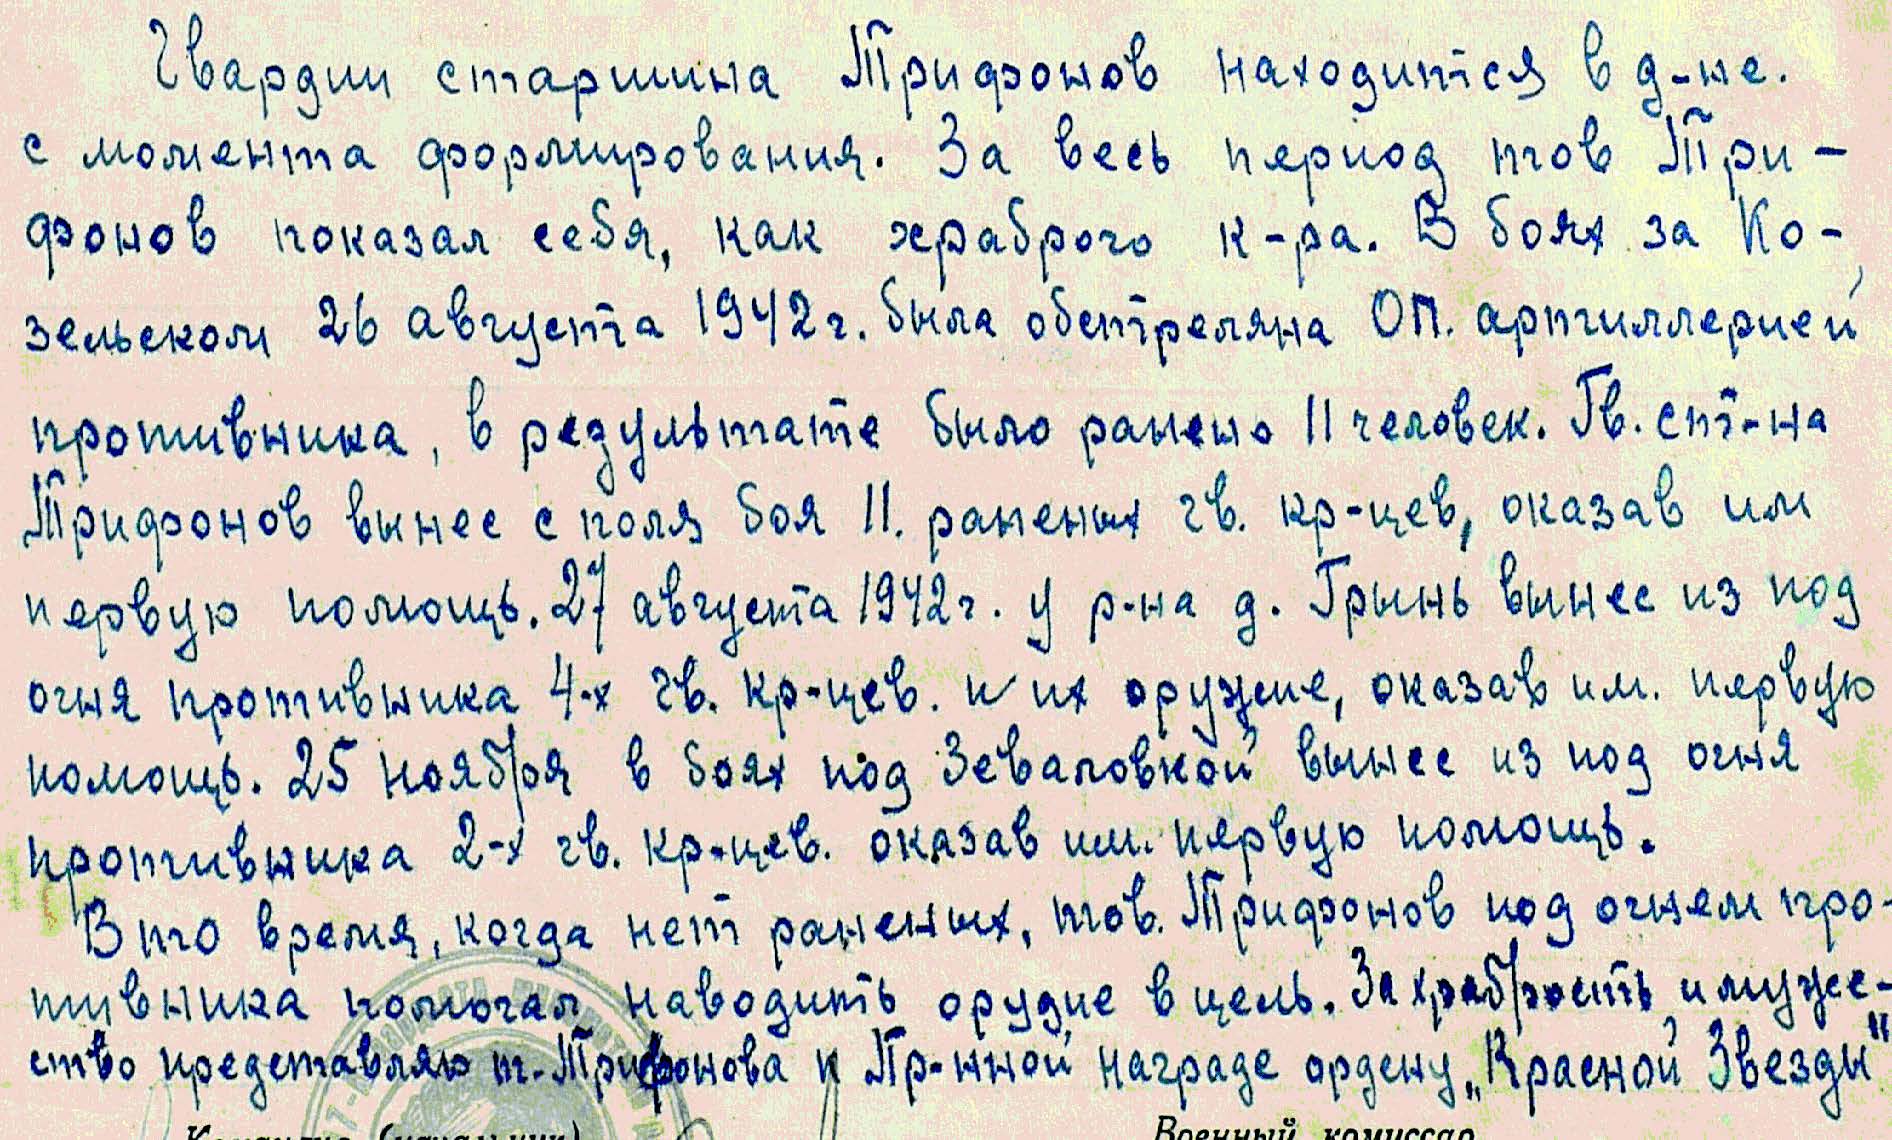 Гвардии старшина Трифонов находится в д-не.
с момента формирования. За весь период тов Три-
фонов показал себя, как храброго к-ра. В боях за Ко-
зельском 26 августа 1942 г. была обстреляна ОП. артиллерией
противника, в результате было ранено 11 человек. Гв. ст-на
Трифонов вынес с поля боя 11. раненых гв. кр-цев, оказав им
первую помощь. 27 августа 1942 г. у р-на д. Грынь вынес из под
огня противника 4-х гв. кр-цев. и их оружие, оказав им. первую
помощь. 25 ноября в боях под Зеваловкой вынес из под огня
противника 2-х гв. кр-цев. оказав им. первую помощь.
В то время, когда нет раненых, тов. Трифонов под огнем про-
тивника помогал наводить орудие в цель. За храбрость и муже-
ство представляю т. Трифонова к Пр-нной награде ордену „Красной Звезды"
Военный комиссар